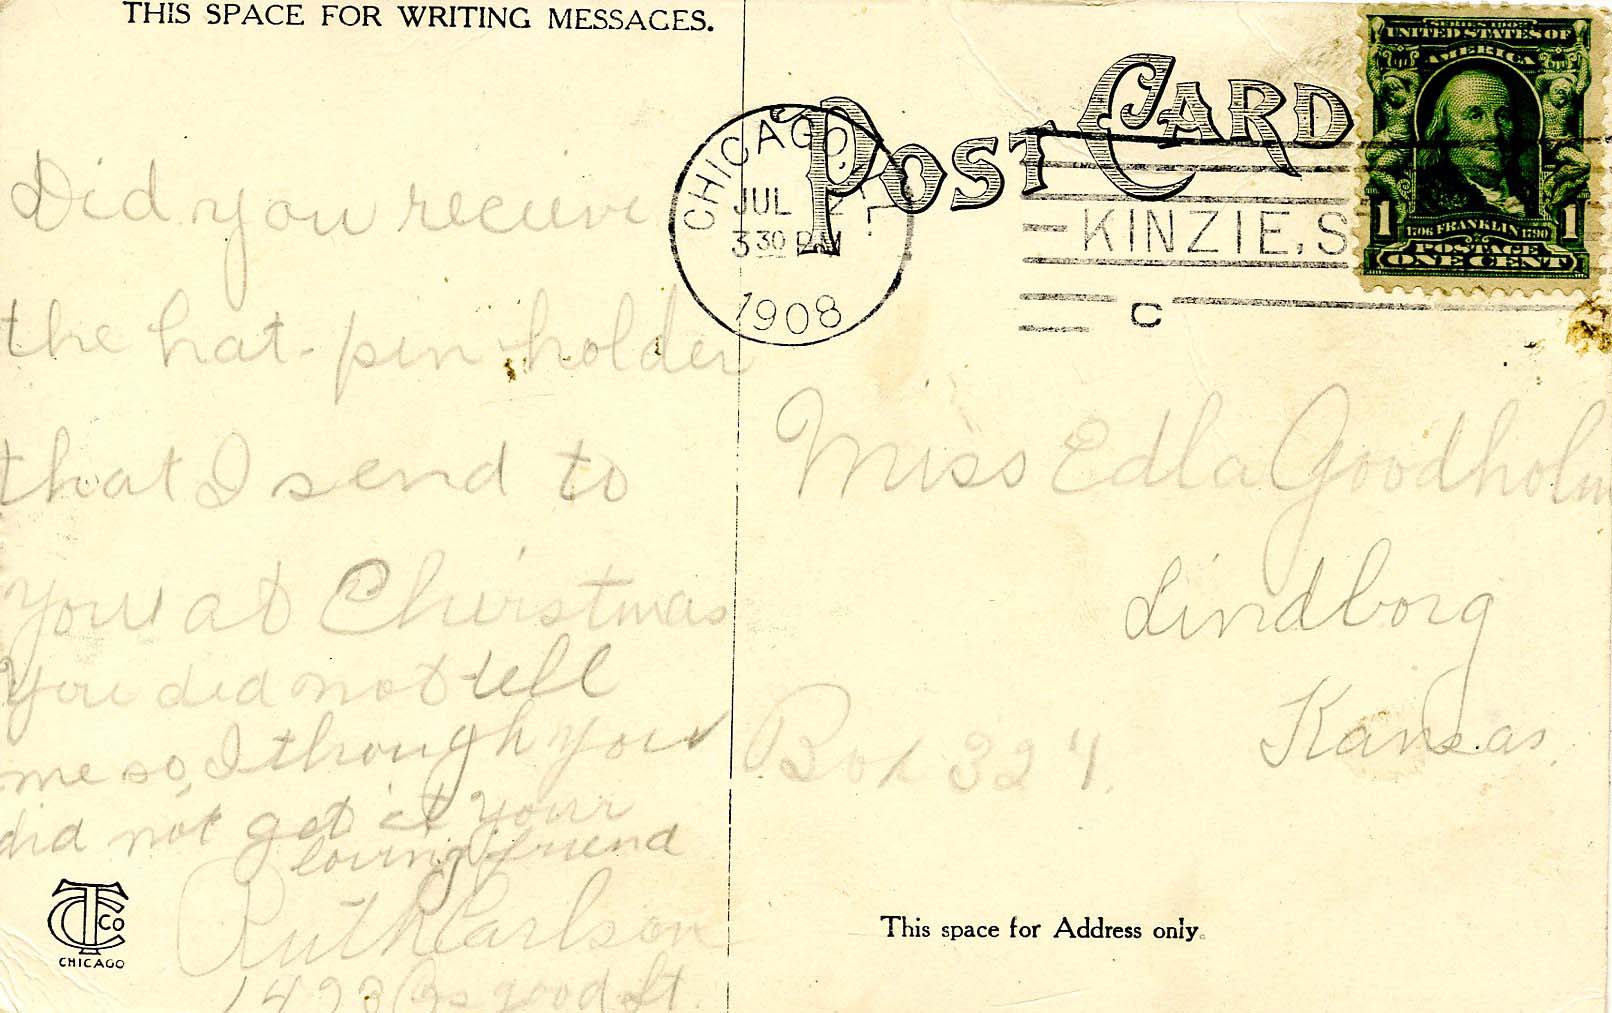 THIS SPACE FOR WRITING MESSAGES.
Did you recieve
the hat-pin holder
that I send to
you at Christmas
You did not tell
me so, I though you
did not get it your
loving friend
Ruth Carlson
1493 Osgood St.
TCCO
CHICAGO
POST CARD
CHICAGO, ILL.
JUL 2
3 30 PM
1908
KINZIE, ST
C
SERIES 1902
UNITED STATES OF
AMERICA
1706 FRANKLIN 1790
1 1
POSTAGE
ONE CENT
Miss Edla Goodholm
Lindborg
Kansas.
Box 324.
This space for Address only.